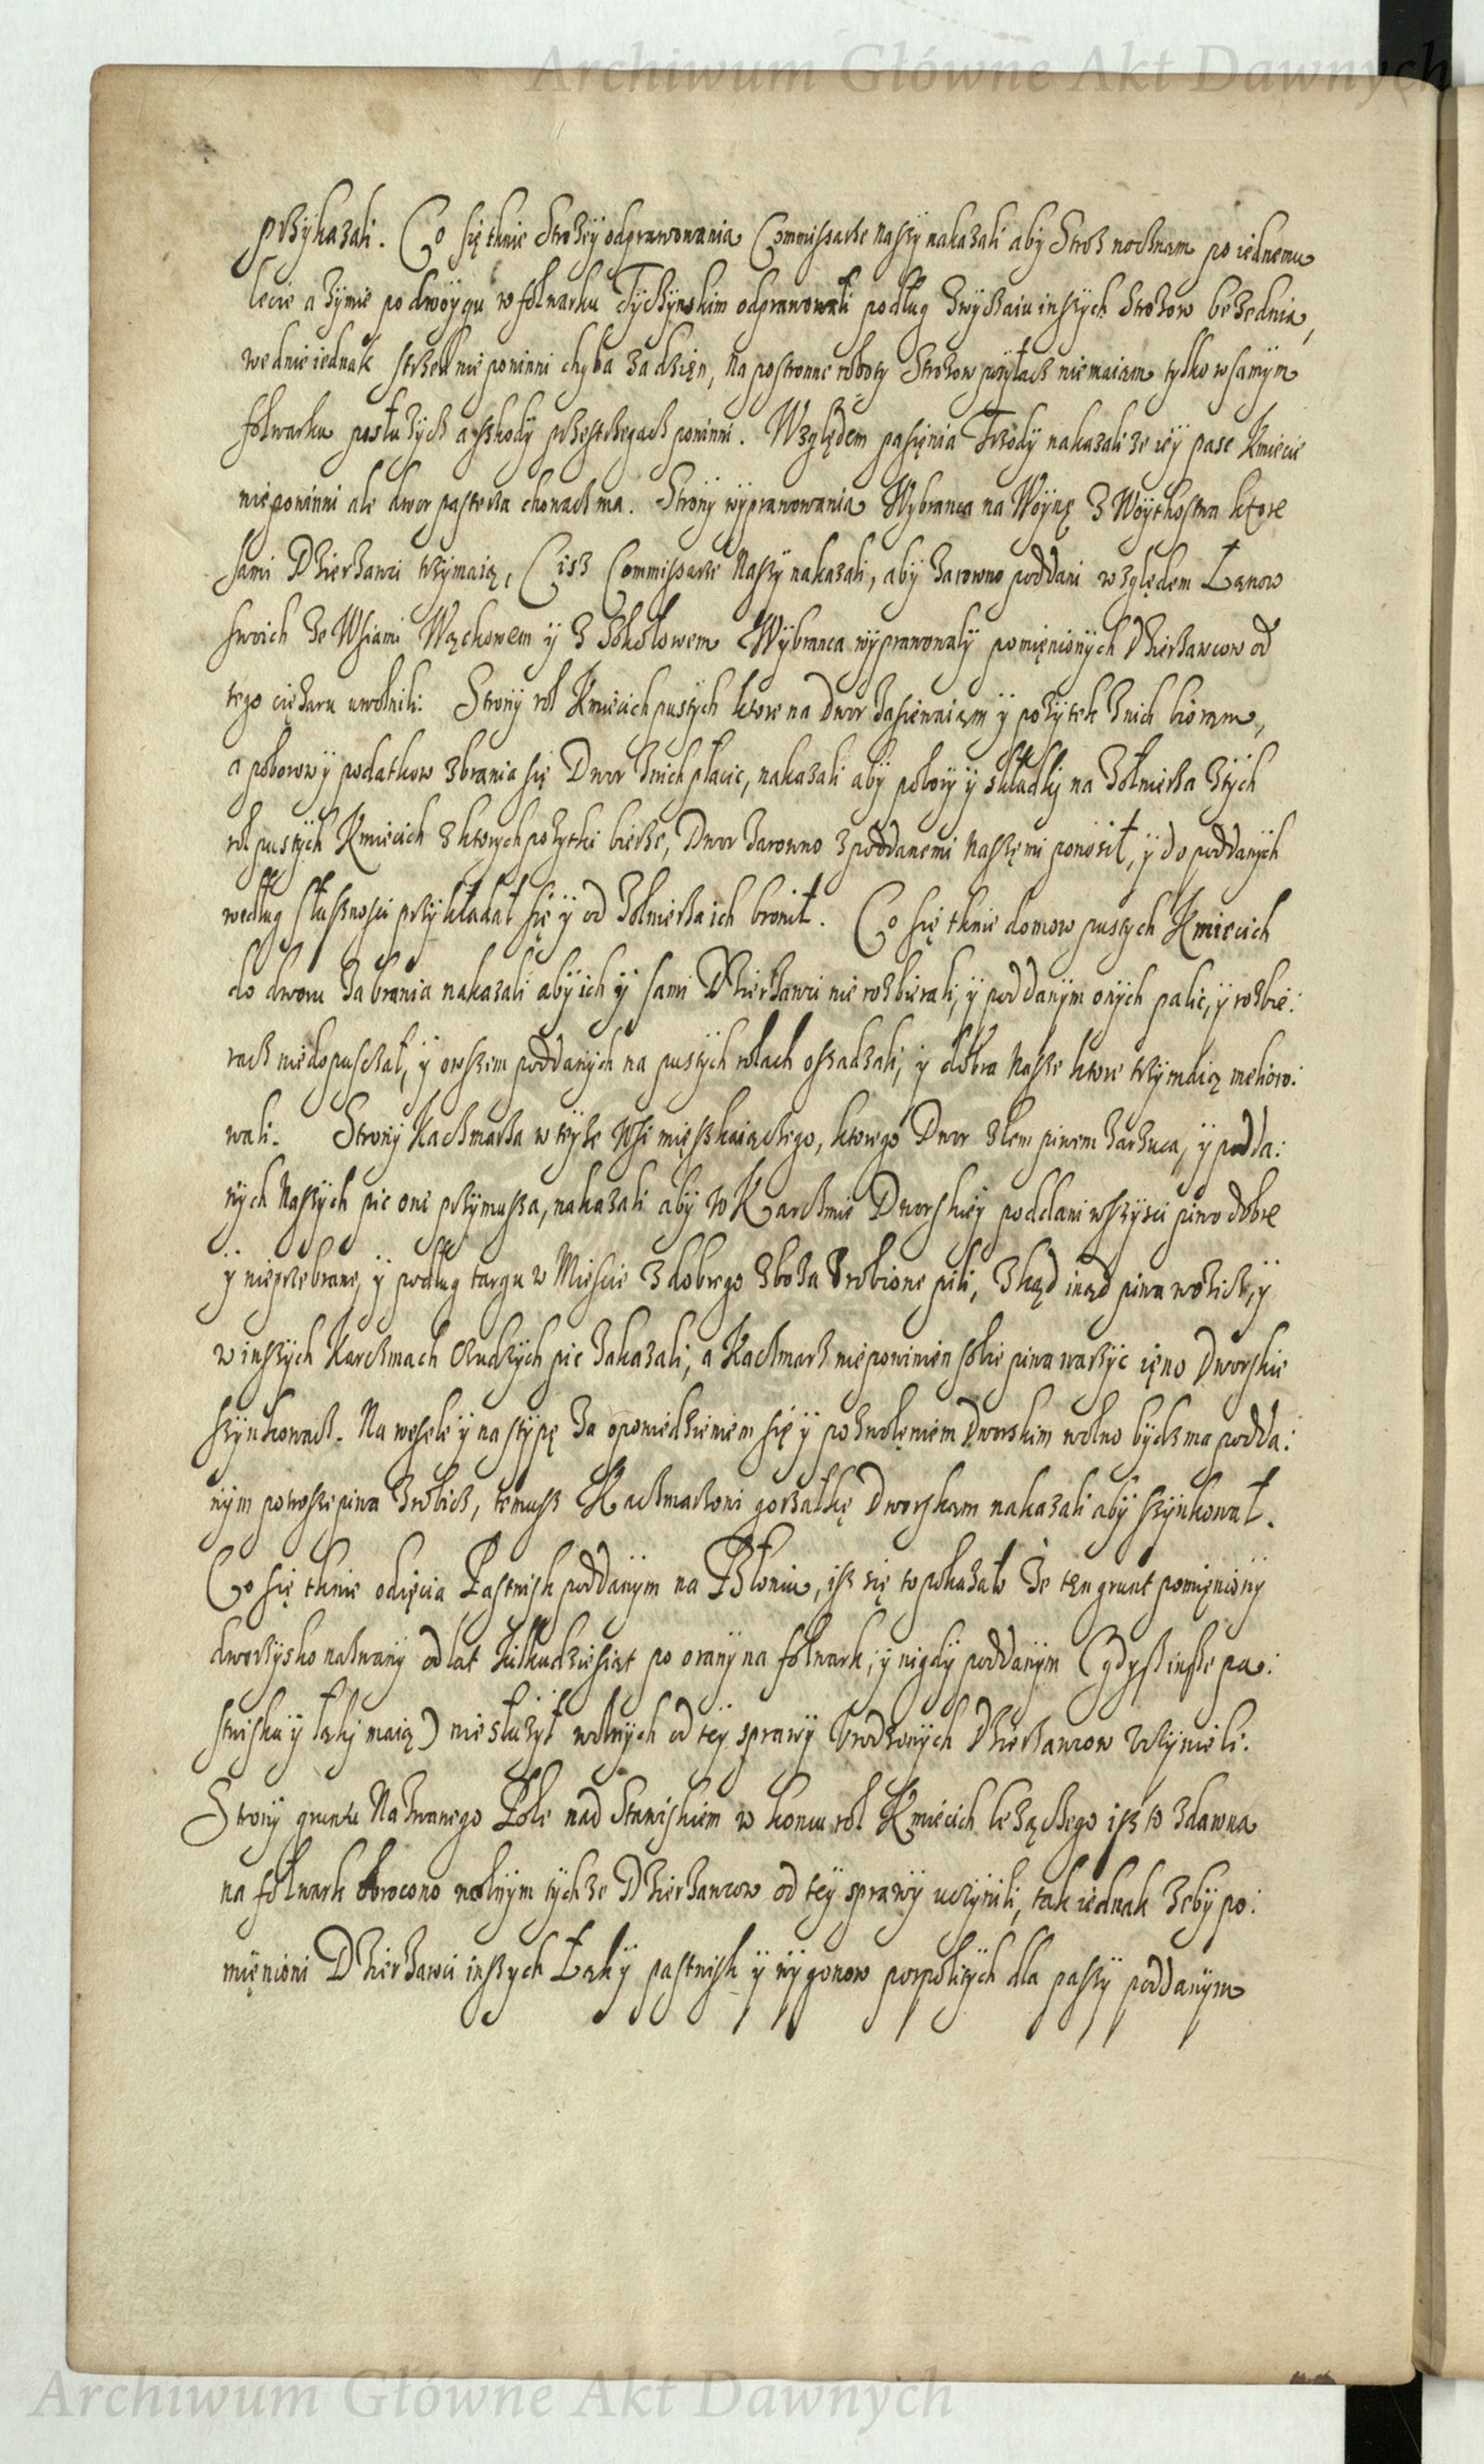 Archiwum Główne Akt Dawnych
przykazali. Co się tknie Strozey odprawowania Commissarze naszy nakazali aby Stroz nocznam po iednemu
lecie a zymie po dwoygu w folwarku Tyczynskim odprawowali podług zwyczaiu inszych Strozow beze dnia,
we dnie iednak strzedz nie powinni chyba za dzięn, na postronne roboty Strozow zazylacz nie maiam tylko w samym
folwarku posłuzycz a szkody przestrzegacz powinni. Względem pasięnia Trzody nakazali ze iey pasc Kmiecie
nie powinni ale dwor pasterza chowacz ma. Strony wyprawowania Wybranca na Woynę z Woythostwa ktore
sami Dzierzawci trzymaią, Ciz Commissarze Naszy nakazali, aby zarowno poddani względem Łanow
swoich ze Wsiami Wąchowem y z Sokołowem Wybranca wyprawowaly pomięnionych Dzierzawcow od
tego cięzaru uwolnili. Strony rol Kmiecich pustych ktore na Dwor zasiewaiam y pozytek z nich bioram,
a poborow y podatkow zbrania się Dwor z nich płacic, nakazali aby pobory y składky na Zołnierza z tych
rol pustych Kmiecich z ktorych pozytki bierze, Dwor zarowno z poddanemi naszęmi ponosił, y do poddanych
według słusznosci przykładał się y od Zołnierza ich bronił. Co się tknie domow pustych Kmiecich
do dworu zabrania nakazali aby ich y sami Dzierzawci nie rozbierali, y poddanym onych palic, y rozbie:
racz niedopusczał, y owszem poddanych na pustych rolach oszadzali, y dobra Nasze ktore trzymaią meliorо:
wali. Strony Kaczmarza w teyze Wsi mięszkaiączego, ktorego Dwor złem piwem zarzuca, y podda:
nych Naszych pic one przymusza, nakazali aby w Karczmie Dworskiey poddani wszysci piwo dobre
y nieprzebrane, y podług targu w Miescie z dobrego zboza zrobione pili, zkąd inąd piwa wozicz, y
w inszych Karczmach czudzych pic zakazali, a Kaczmarz niepowinien sobie piwa warzyc ięno Dworskie
szynkowacz. Na wesele y na stypę za opowiedzieniem się y pozwolęniem Dworskim wolno bydz ma podda:
nym potrosze piwa zrobicz, temusz Kaczmarzowi gorzałkę Dworskam nakazali aby szynkował.
Co się tknie odięcia Pastwisk poddanym na Błoniu, isz się to pokazało Ze ten grunt pomięniony
dworzysko nazwany od lat kilkudziesiąt po orany na folwark, y nigdy poddanym (gdysz insze pa:
stwiska y łąky maią) nie służył wolnych od tey sprawy Urodzonych Dzierzawcow uczynieli.
Strony gruntu Nazwanego Pole nad Stawiskiem w koncu rol Kmiecich lezączego isz to zdawna
na folwark obrocono wolnym tychze Dzierzawcow od tey sprawy uczynili, tak iednak zeby po:
mięnioni Dzierzawci inszych Łąky pastwisk y wygonow pospolitych dla paszy poddanym
Archiwum Główne Akt Dawnych